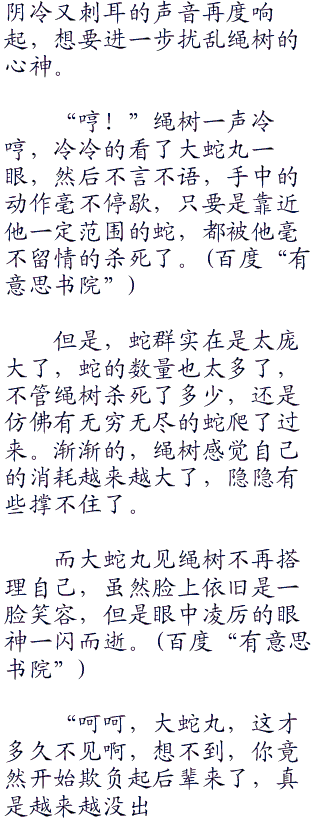 阴冷又刺耳的声音再度响
起，想要进一步扰乱绳树的
心神。
“哼！”绳树一声冷
哼，冷冷的看了大蛇丸一
眼，然后不言不语，手中的
动作毫不停歇，只要是靠近
他一定范围的蛇，都被他毫
不留情的杀死了。(百度“有
意思书院”)
但是，蛇群实在是太庞
大了，蛇的数量也太多了，
不管绳树杀死了多少，还是
仿佛有无穷无尽的蛇爬了过
来。渐渐的，绳树感觉自己
的消耗越来越大了，隐隐有
些撑不住了。
而大蛇丸见绳树不再搭
理自己，虽然脸上依旧是一
脸笑容，但是眼中凌厉的眼
神一闪而逝。(百度“有意思
书院”)
“呵呵，大蛇丸，这才
多久不见啊，想不到，你竟
然开始欺负起后辈来了，真
是越来越没出